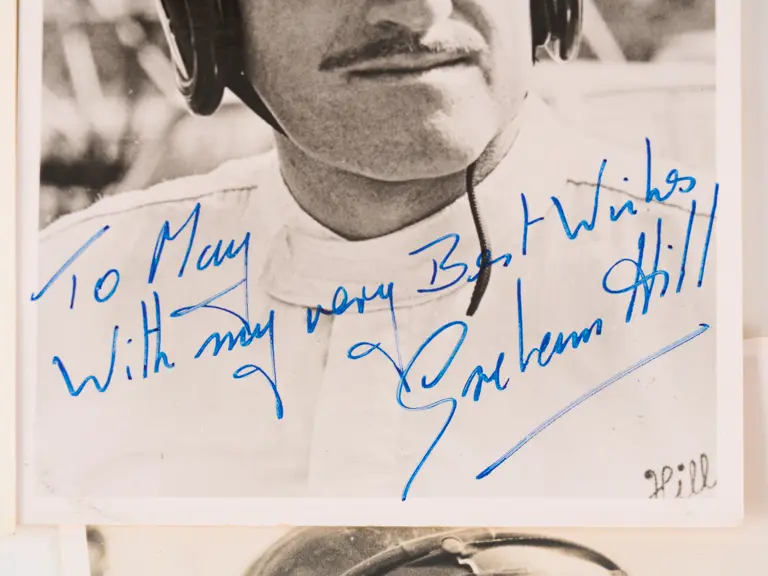 To May
With my very Best Wishes
Graham Hill
Hill